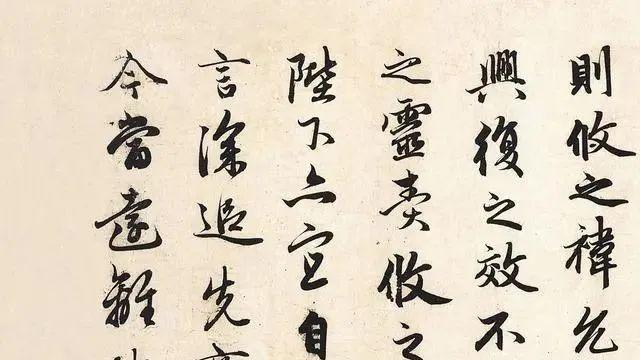 則攸之禕允
興復之效不
之靈責攸之
陛下亦宜自
言深追先
今當遠離